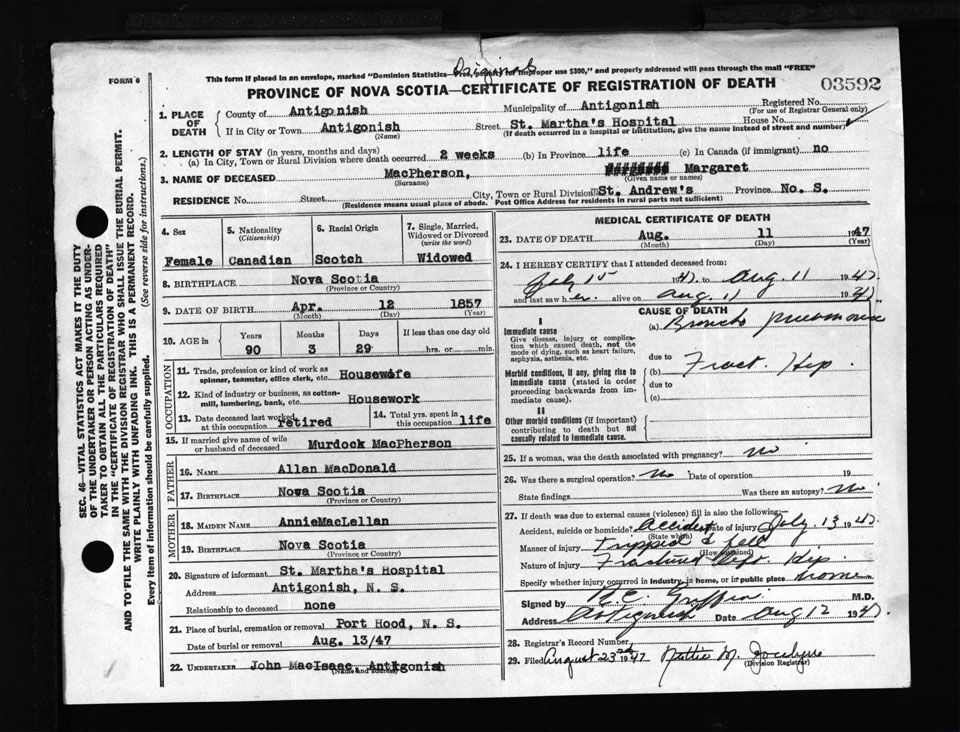 Original
FORM 6
This form if placed in an envelope, marked "Dominion Statistics—Free, penalty for improper use $300," and properly addressed will pass through the mail "FREE"
PROVINCE OF NOVA SCOTIA—CERTIFICATE OF REGISTRATION OF DEATH
03592
1. PLACE OF DEATH
County of Antigonish Municipality of Antigonish Registered No.
(For use of Registrar General only)
If in City or Town Antigonish Street St. Martha's Hospital House No.
(Name) (If death occurred in a hospital or institution, give the name instead of street and number)
2. LENGTH OF STAY (in years, months and days)
(a) In City, Town or Rural Division where death occurred 2 weeks (b) In Province life (c) In Canada (if immigrant) no
3. NAME OF DECEASED MacPherson, Margaret
(Surname) (Given name or names)
RESIDENCE No. Street City, Town or Rural Division St. Andrew's Province No. S.
(Residence means usual place of abode. Post Office Address for residents in rural parts not sufficient)
4. Sex
Female
5. Nationality
(Citizenship)
Canadian
6. Racial Origin
Scotch
7. Single, Married, Widowed or Divorced
(write the word)
Widowed
8. BIRTHPLACE Nova Scotia
(Province or Country)
9. DATE OF BIRTH Apr. 12 1857
(Month) (Day) (Year)
10. AGE in
Years Months Days If less than one day old
90 3 29 hrs. or min.
OCCUPATION
11. Trade, profession or kind of work as
spinner, teamster, office clerk, etc. Housewife
12. Kind of industry or business, as cotton-
mill, lumbering, bank, etc. Housework
13. Date deceased last worked
at this occupation retired
14. Total yrs. spent in
this occupation life
15. If married give name of wife
or husband of deceased Murdock MacPherson
FATHER
16. NAME Allan MacDonald
17. BIRTHPLACE Nova Scotia
(Province or Country)
MOTHER
18. MAIDEN NAME AnnieMacLellan
19. BIRTHPLACE Nova Scotia
(Province or Country)
20. Signature of informant St. Martha's Hospital
Address Antigonish, N. S.
Relationship to deceased none
21. Place of burial, cremation or removal Port Hood, N. S.
Date of burial or removal Aug. 13/47
22. UNDERTAKER John MacIsaac, Antigonish
(Name and address)
MEDICAL CERTIFICATE OF DEATH
23. DATE OF DEATH Aug. 11 1947
(Month) (Day) (Year)
24. I HEREBY CERTIFY that I attended deceased from:
July 15 1947 to Aug. 11 1947
and last saw her alive on Aug. 11 1947
CAUSE OF DEATH
I
Immediate cause
Give disease, injury or complication which caused death, not the mode of dying, such as heart failure, asphyxia, asthenia, etc.
(a) Broncho pneumonia
due to
Morbid conditions, if any, giving rise to immediate cause (stated in order proceeding backwards from immediate cause).
(b) Fract. Hip
due to
(c)
II
Other morbid conditions (if important) contributing to death but not causally related to immediate cause.
25. If a woman, was the death associated with pregnancy? no
26. Was there a surgical operation? no Date of operation 19
State findings Was there an autopsy? no
27. If death was due to external causes (violence) fill in also the following:
Accident, suicide or homicide? Accident Date of injury July 13 1947
(State which)
Manner of injury Tripped & fell
(How sustained)
Nature of injury Fractured Hip
Specify whether injury occurred in industry, in home, or in public place home
Signed by Griffin M.D.
Address Antigonish Date Aug 12 1947
28. Registrar's Record Number
29. Filed August 23rd 1947 Nettie M.
(Division Registrar)
SEC. 46- VITAL STATISTICS ACT MAKES IT THE DUTY
OF THE UNDERTAKER OR PERSON ACTING AS UNDER-
TAKER TO OBTAIN ALL THE PARTICULARS REQUIRED
IN THE "CERTIFICATE OF REGISTRATION OF DEATH"
AND TO FILE THE SAME WITH THE DIVISION REGISTRAR WHO SHALL ISSUE THE BURIAL PERMIT.
WRITE PLAINLY WITH UNFADING INK. THIS IS A PERMANENT RECORD.
Every item of information should be carefully supplied. (See reverse side for instructions.)